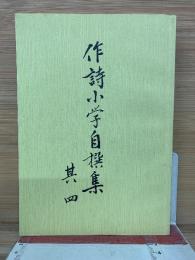 作詩小学自撰集
其四